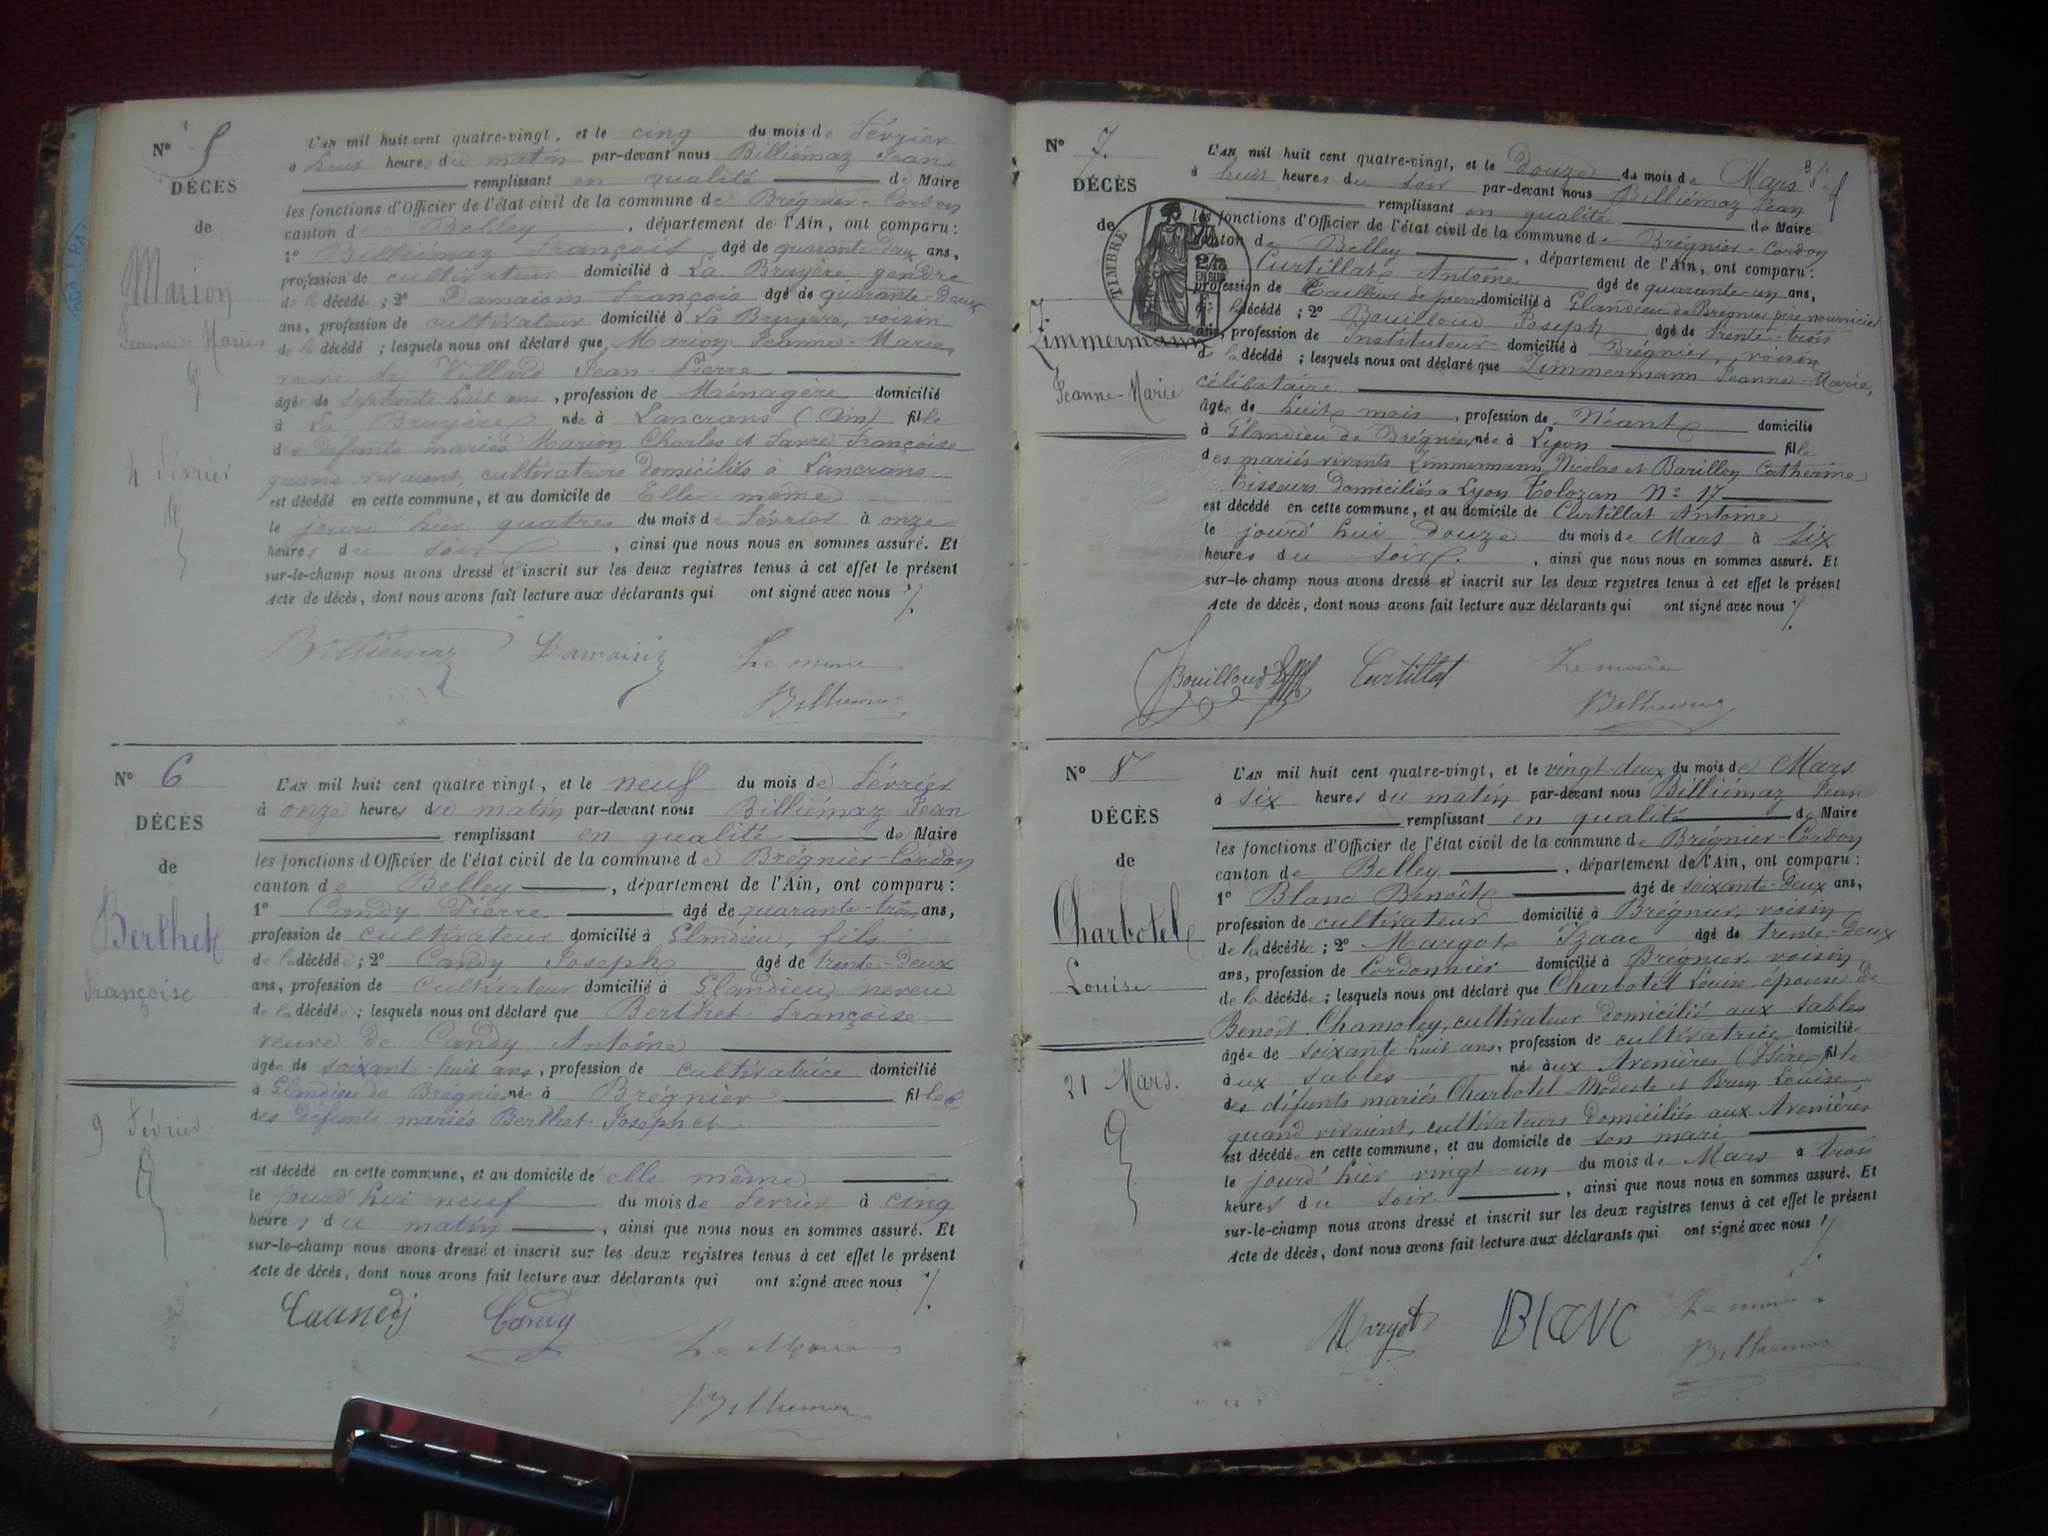 N° 5
DÉCÈS
de
Marion
Jeanne-Marie
4 Février
L'AN mil huit cent quatre-vingt, et le cinq du mois de Février
à huit heures du matin par-devant nous Billiémaz Jean
remplissant en qualité de Maire
les fonctions d'Officier de l'état civil de la commune de Brégnier-Cordon
canton de Belley, département de l'Ain, ont comparu :
1° Billiémaz François âgé de quarante-deux ans,
profession de cultivateur domicilié à La Bruyère, gendre
de la décédé ; 2° Damaisin François âgé de quarante-deux
ans, profession de cultivateur domicilié à La Bruyère, voisin
de la décédé ; lesquels nous ont déclaré que Marion Jeanne-Marie,
veuve de Villard Jean-Pierre
âgée de septante-huit ans, profession de Ménagère domicilié
à La Bruyère née à Lancrans (Ain) fille
de défunts mariés Marion Charles et Favre Françoise
quand vivaient, cultivateurs domiciliés à Lancrans
est décédé en cette commune, et au domicile de Elle-même
le jour hier quatre du mois de Février à onze
heures du soir, ainsi que nous nous en sommes assuré. Et
sur-le-champ nous avons dressé et inscrit sur les deux registres tenus à cet effet le présent
Acte de décès, dont nous avons fait lecture aux déclarants qui ont signé avec nous
Billiémaz Damaisin Le maire
Billiemaz
N° 6
DÉCÈS
de
Berthet
Françoise
9 Février
L'AN mil huit cent quatre vingt, et le neuf du mois de Février
à onze heures du matin par-devant nous Billiémaz Jean
remplissant en qualité de Maire
les fonctions d'Officier de l'état civil de la commune de Brégnier-Cordon
canton de Belley, département de l'Ain, ont comparu :
1° Candy Pierre âgé de quarante-trois ans,
profession de cultivateur domicilié à Glandieu, fils
de la décédé ; 2° Candy Joseph âgé de trente-deux
ans, profession de Cultivateur domicilié à Glandieu, neveu
de la décédé ; lesquels nous ont déclaré que Berthet Françoise
veuve de Candy Antoine
âgée de soixante-huit ans, profession de cultivatrice domicilié
à Glandieu de Brégnier née à Brégnier fille
des défunts mariés Berthet Joseph et
est décédé en cette commune, et au domicile de elle même
le jourd'hui neuf du mois de Février à cinq
heures du matin, ainsi que nous nous en sommes assuré. Et
sur-le-champ nous avons dressé et inscrit sur les deux registres tenus à cet effet le présent
Acte de décès, dont nous avons fait lecture aux déclarants qui ont signé avec nous
Caandy Candy Le Maire
Billiemaz
N° 7
DÉCÈS
de
TIMBRE
EN SUS
Zimmermann
Jeanne-Marie
L'AN mil huit cent quatre-vingt, et le Douze du mois de Mars
à huit heures du soir par-devant nous Billiémaz Jean
remplissant en qualité de Maire
les fonctions d'Officier de l'état civil de la commune de Brégnier-Cordon
canton de Belley, département de l'Ain, ont comparu :
Curtillat Antoine âgé de quarante-un ans,
profession de Tailleur de pierre domicilié à Glandieu de Brégnier, père nourricier
décédé ; 2° Bouilloud Joseph âgé de trente-trois
ans, profession de Instituteur domicilié à Brégnier, voisin
de la décédé ; lesquels nous ont déclaré que Zimmermann Jeanne-Marie,
célibataire
âgée de huit mois, profession de Néant domicilié
à Glandieu de Brégnier née à Lyon fille
des mariés vivants Zimmermann Nicolas et Barillon Catherine
Tisseurs domiciliés à Lyon Tolozan N° 17
est décédé en cette commune, et au domicile de Curtillat Antoine
le jourd'hui douze du mois de Mars à six
heures du soir, ainsi que nous nous en sommes assuré. Et
sur-le-champ nous avons dressé et inscrit sur les deux registres tenus à cet effet le présent
Acte de décès, dont nous avons fait lecture aux déclarants qui ont signé avec nous
Bouilloud Curtillat Le maire
Billiemaz
N° 8
DÉCÈS
de
Charbotel
Louise
21 Mars.
L'AN mil huit cent quatre-vingt, et le vingt-deux du mois de Mars
à six heures du matin par-devant nous Billiémaz Jean
remplissant en qualité de Maire
les fonctions d'Officier de l'état civil de la commune de Brégnier-Cordon
canton de Belley, département de l'Ain, ont comparu :
1° Blanc Benoît âgé de soixante-deux ans,
profession de cultivateur domicilié à Brégnier, voisin
de la décédée ; 2° Margot Izaac âgé de trente-deux
ans, profession de Cordonnier domicilié à Brégnier voisin
de la décédée ; lesquels nous ont déclaré que Charbotel Louise épouse de
Benoît Chamoley, cultivateur domicilié aux Sables
âgée de soixante huit ans, profession de cultivatrice domiciliée
aux Sables née aux Avenières (Isère) fille
des défunts mariés Charbotel Modeste et Brun Louise,
quand vivaient, cultivateurs domiciliés aux Avenières
est décédée en cette commune, et au domicile de son mari
le jourd'hier vingt-un du mois de Mars à trois
heures du soir, ainsi que nous nous en sommes assuré. Et
sur-le-champ nous avons dressé et inscrit sur les deux registres tenus à cet effet le présent
Acte de décès, dont nous avons fait lecture aux déclarants qui ont signé avec nous
Margot BLANC Le maire
Billiemaz